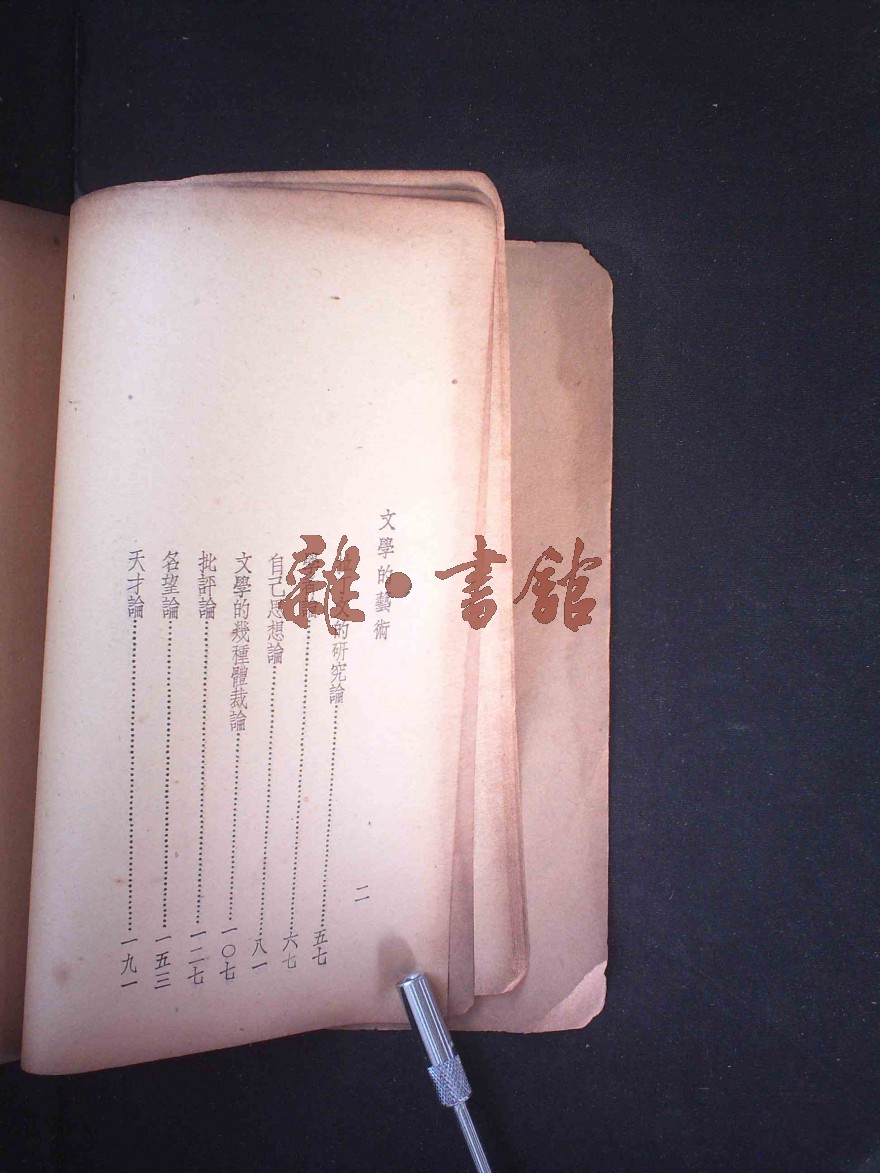 文學的藝術
二
文的研究論……五七
論……六七
自己思想論……八一
文學的幾種體裁論……一〇七
批評論……一二七
名望論……一五三
天才論……一九一
雜·書館